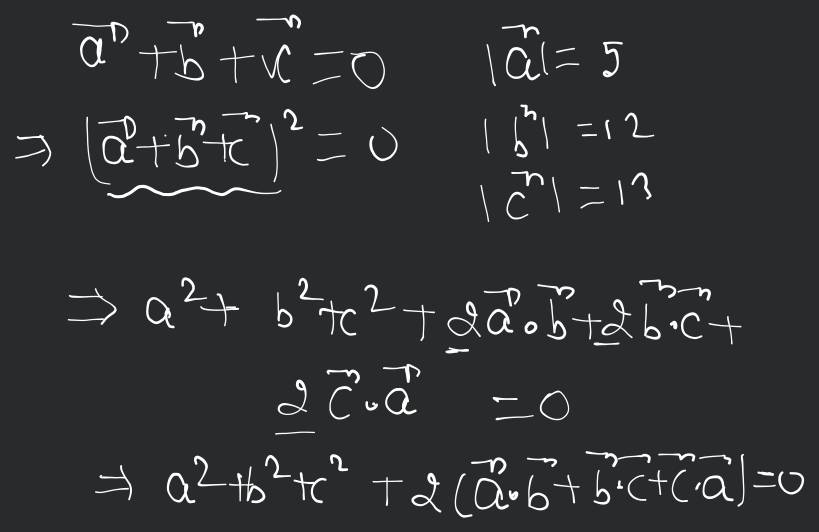 $\vec{a} + \vec{b} + \vec{c} = 0$ $|\vec{a}| = 5$
$\Rightarrow (\vec{a} + \vec{b} + \vec{c})^2 = 0$ $|\vec{b}| = 12$
$|\vec{c}| = 13$
$\Rightarrow a^2 + b^2 + c^2 + 2\vec{a} \cdot \vec{b} + 2\vec{b} \cdot \vec{c} +$
$2\vec{c} \cdot \vec{a} = 0$
$\Rightarrow a^2 + b^2 + c^2 + 2(\vec{a} \cdot \vec{b} + \vec{b} \cdot \vec{c} + \vec{c} \cdot \vec{a}) = 0$